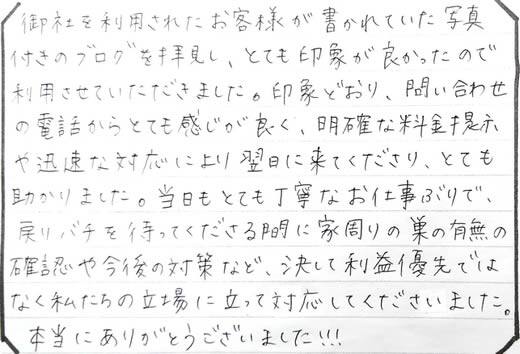 御社を利用されたお客様が書かれていた写真
付きのブログを拝見し、とても印象が良かったので
利用させていただきました。印象どおり、問い合わせ
の電話からとても感じが良く、明確な料金提示
や迅速な対応により翌日に来てくださり、とても
助かりました。当日もとても丁寧なお仕事ぶりで、
戻りバチを待ってくださる間に家周りの巣の有無の
確認や今後の対策など、決して利益優先では
なく私たちの立場に立って対応してくださいました。
本当にありがとうございました!!!